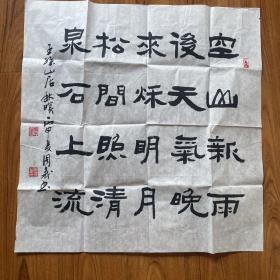 空山新雨
後天氣晚
來秋明月
松間照清
泉石上流
王維山居秋暝